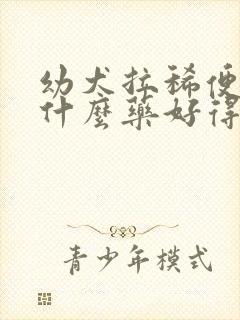 幼犬拉稀便
什麼藥好得
青少年模式